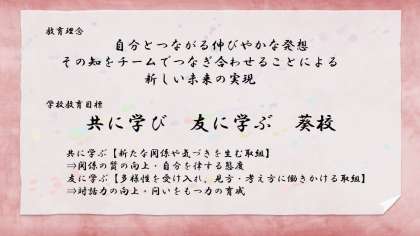 教育理念
自分とつながる伸びやかな発想
その知をチームでつなぎ合わせることによる
新しい未来の実現
学校教育目標
共に学び 友に学ぶ 葵校
共に学ぶ【新たな関係や気づきを生む取組】
⇒関係の質の向上・自分を律する態度
友に学ぶ【多様性を受け入れ、見方・考え方に働きかける取組】
⇒対話力の向上・問いをもつ力の育成